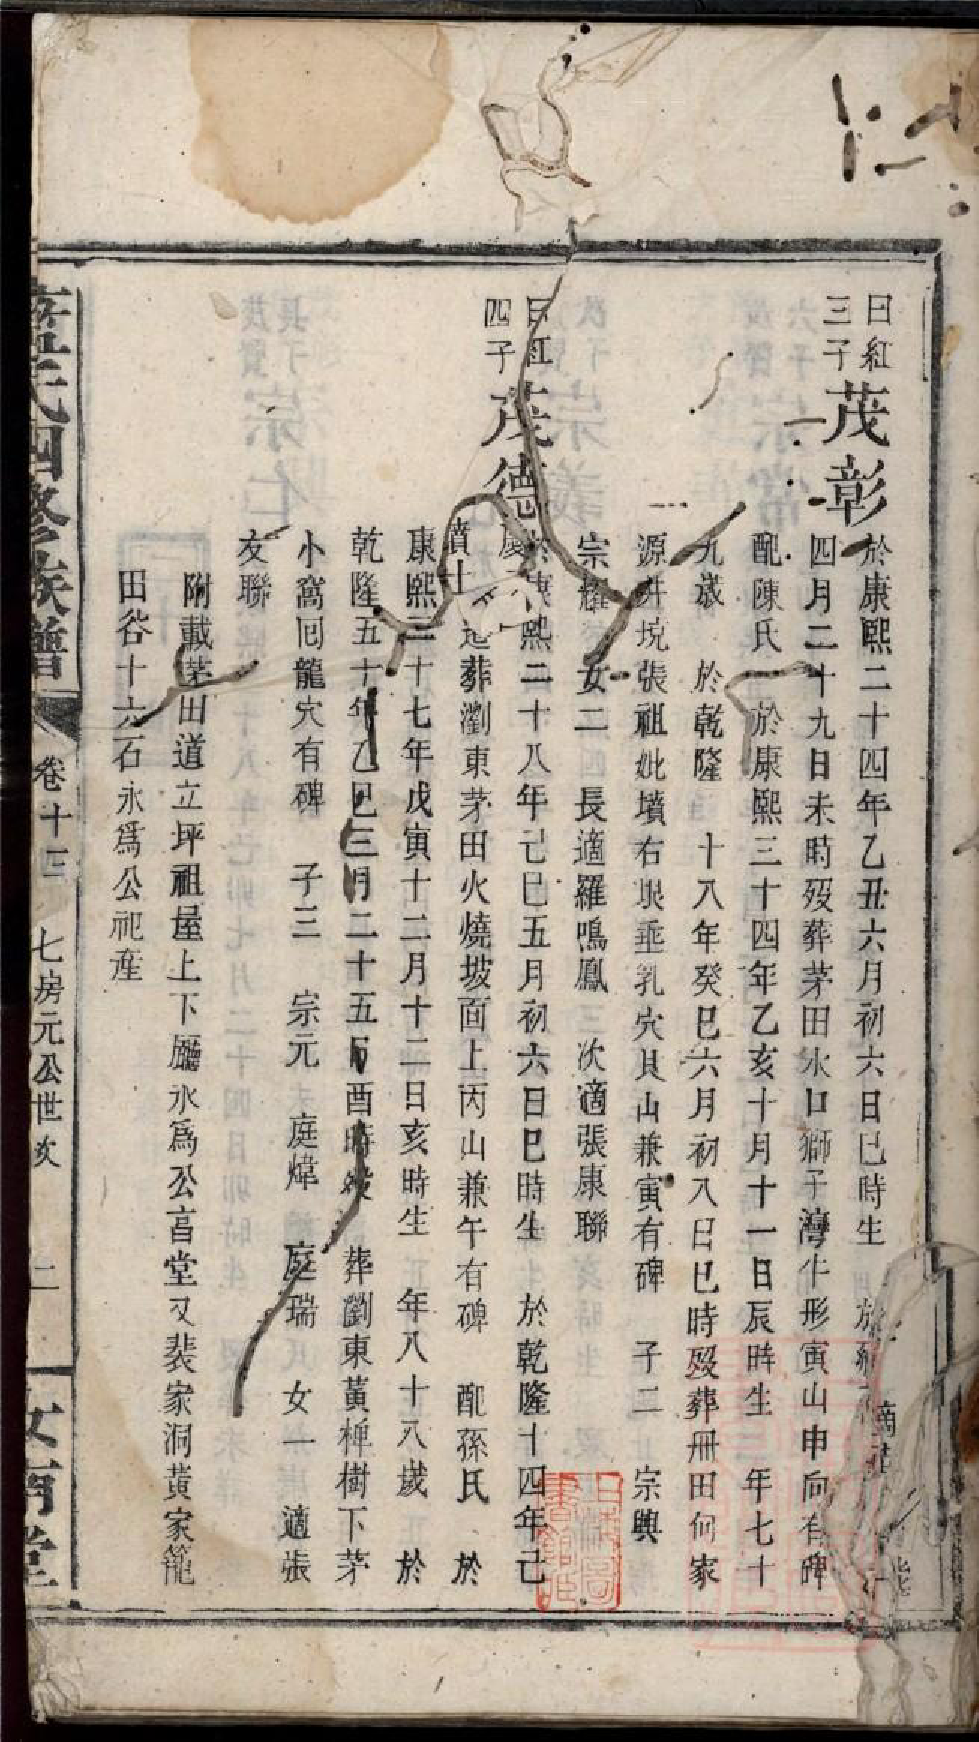 曰紅
三子
茂彰
於康熙二十四年乙丑六月初六日巳時生 於乾
四月二十九日未時歿葬茅田水口獅子灣牛形寅山申向有碑
配陳氏 於康熙三十四年乙亥十月十一日辰時生 年七十
九歲 於乾隆 十八年癸巳六月初八日巳時歿葬冊田何家
源井境張祖妣墳右垠垂乳穴艮山兼寅有碑 子二 宗興
宗耀 女二 長適羅鳴鳳 次適張康聯
曰紅
四子
茂德
於康熙二十八年己巳五月初六日巳時生 於乾隆十四年己
葬瀏東茅田火燒坡面上丙山兼午有碑 配孫氏 於
康熙三十七年戊寅十二月十二日亥時生 年八十八歲 於
乾隆五十年乙巳三月二十五日酉時歿 葬瀏東黃椑樹下茅
小窩囘龍穴有碑 子三 宗元 庭煒 庭瑞 女一 適張
友聯
附載茅田道立坪祖屋上下廳永爲公亯堂又裴家洞黃家籠
田谷十六石永爲公祀產
氏四修族譜
卷十三
七房元公世次
二
汝南堂